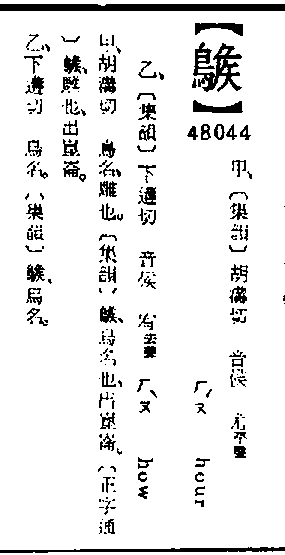 【】
48044
甲、〔集韻〕胡溝切 音侯 尤平聲 ㄏㄡˊ hour
乙、〔集韻〕下遘切 音候 宥去聲 ㄏㄡˋ how
甲、胡溝切 鳥名、雕也。〔集韻〕、鳥名也、出崑崙。〔正字通
〕、雕也、出崑崙。
乙、下遘切 鳥名。〔集韻〕、鳥名。